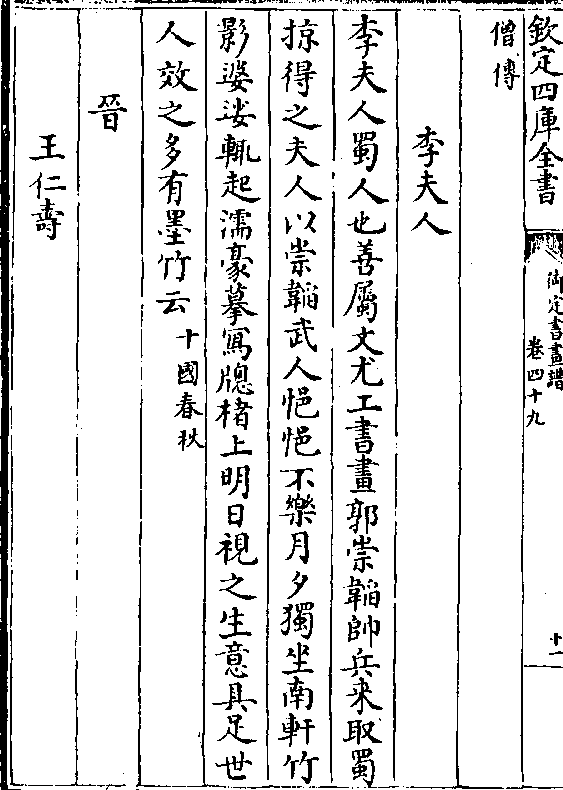 欽定四庫全書
御定書畫譜
卷四十九
十一
僧傳
李夫人
李夫人蜀人也善屬文尤工書畫郭崇韜帥兵來取蜀
掠得之夫人以崇韜武人悒悒不樂月夕獨坐南軒竹
影婆娑輒起濡豪摹寫牕楮上明日視之生意具足世
人效之多有墨竹云十國春秋
晉
王仁壽